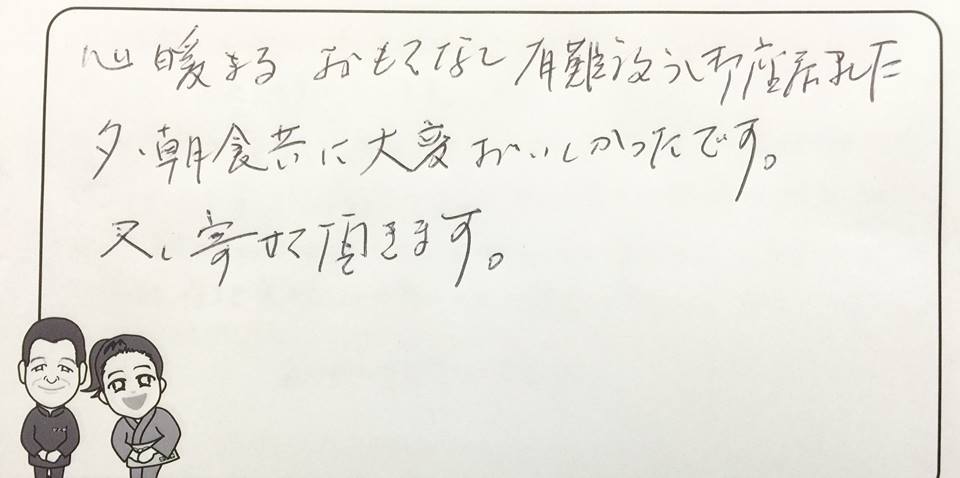 心暖まる おもてなし 有難う御座居ました
夕、朝食共に大変おいしかったです。
又、寄せて頂きます。